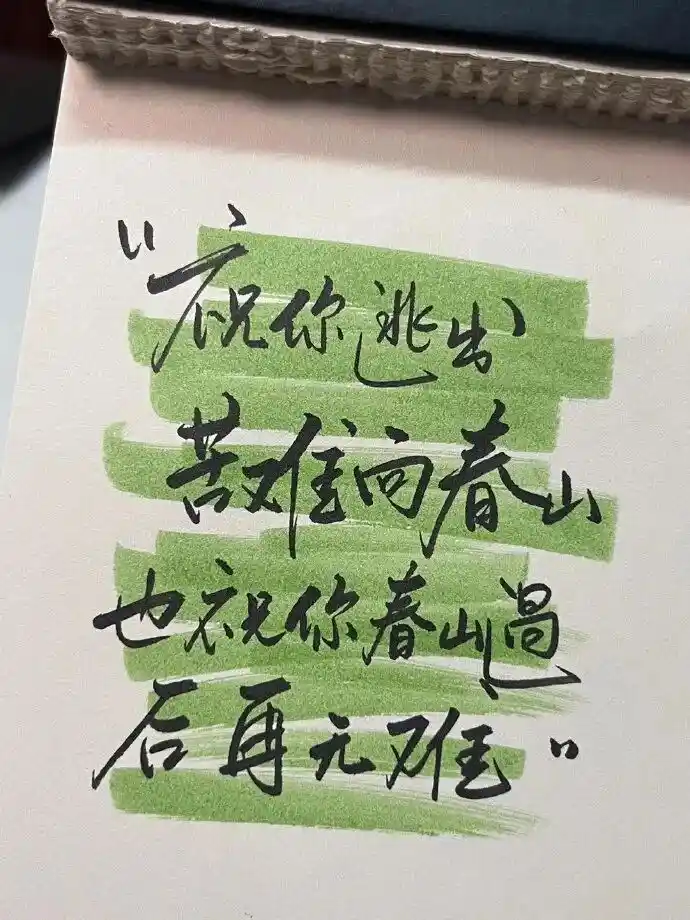 “祝你逃出
苦难向春山
也祝你春山過
后再无难”